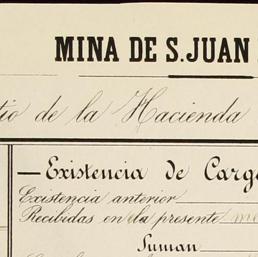 MINA DE S. JUAN
tio de la Hacienda
— Existencia de Carg
Existencia anterior
Recibidas en la presente
Suman